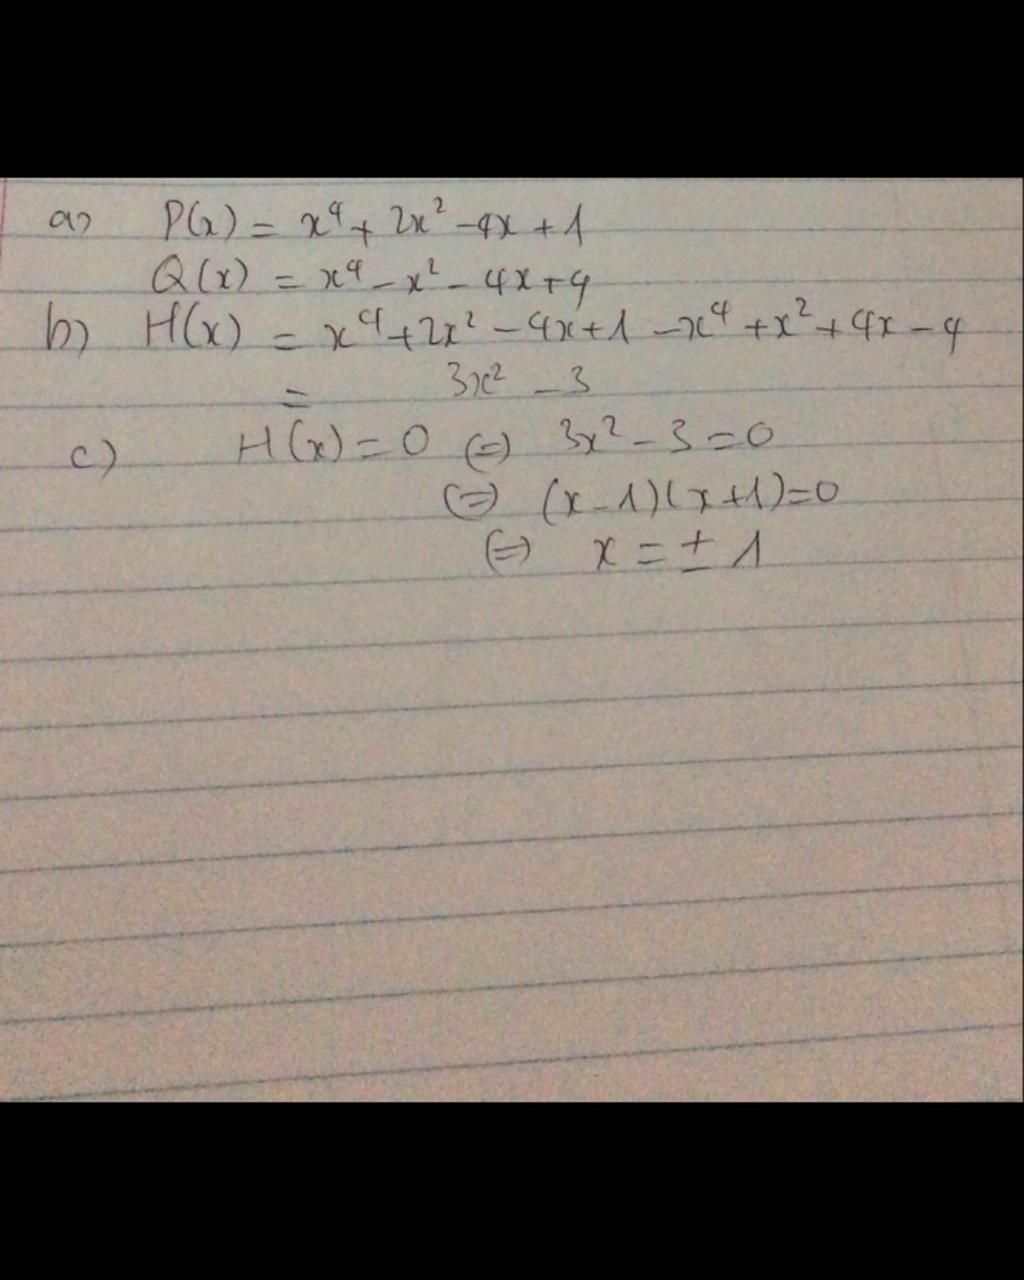 a) P(x) = x⁴ + 2x² - 4x + 1
Q(x) = x⁴ - x² - 4x + 4
b) H(x) = x⁴ + 2x² - 4x + 1 - x⁴ + x² + 4x - 4
= 3x² - 3
c) H(x) = 0 (=) 3x² - 3 = 0
(=) (x - 1)(x + 1) = 0
(=) x = ± 1